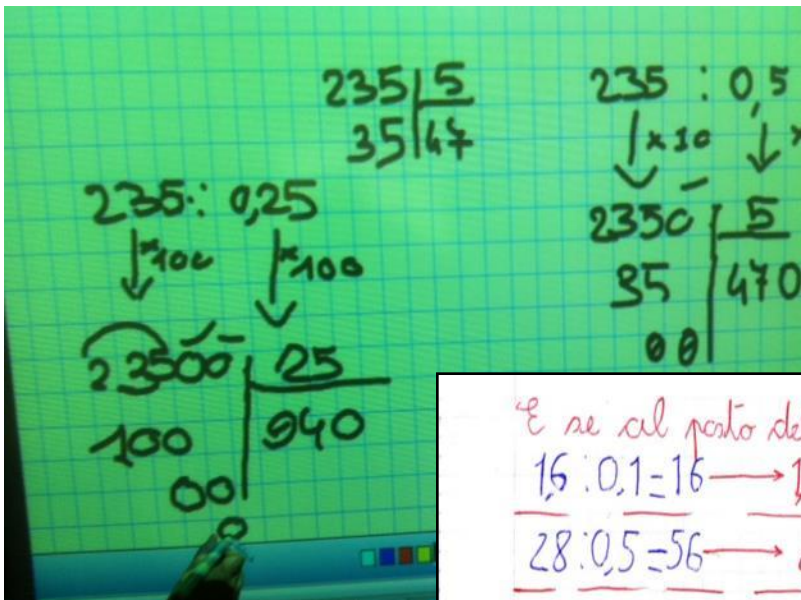 235 5
35 47
235 : 0,5
×10 ×
2350 5
35 470
00
235: 0,25
×100 ×100
23500 25
100 940
00
0
E se al posto de
1,6:0,1=16 → 1,
28:0,5=56 →